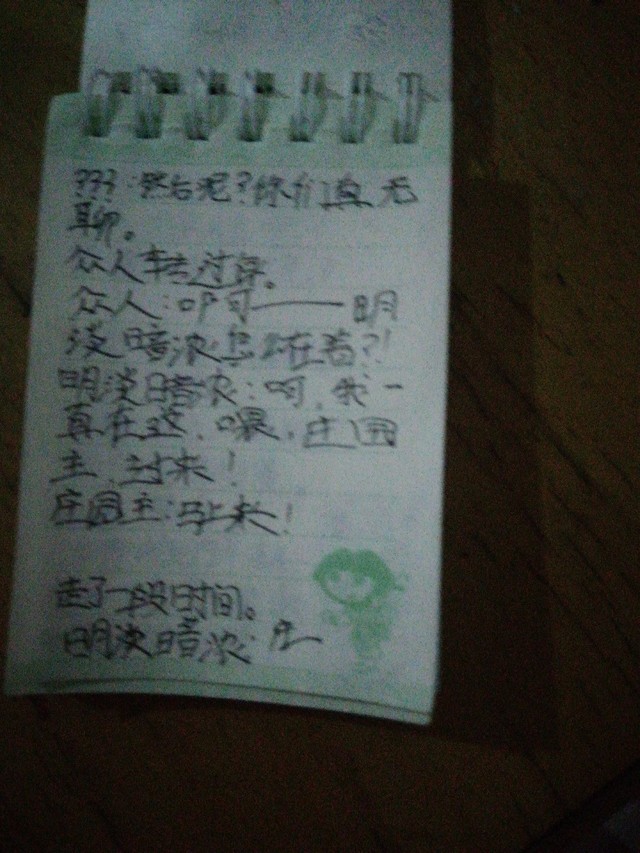 ???:然后呢?你们真无
聊。
众人转过身。
众人:啊——明
淡暗浓你在着?!
明淡暗浓:啊,我一
真在这,喂,庄园
主,过来!
庄园主:马上来!
走了一段时间。
明淡暗浓:庄